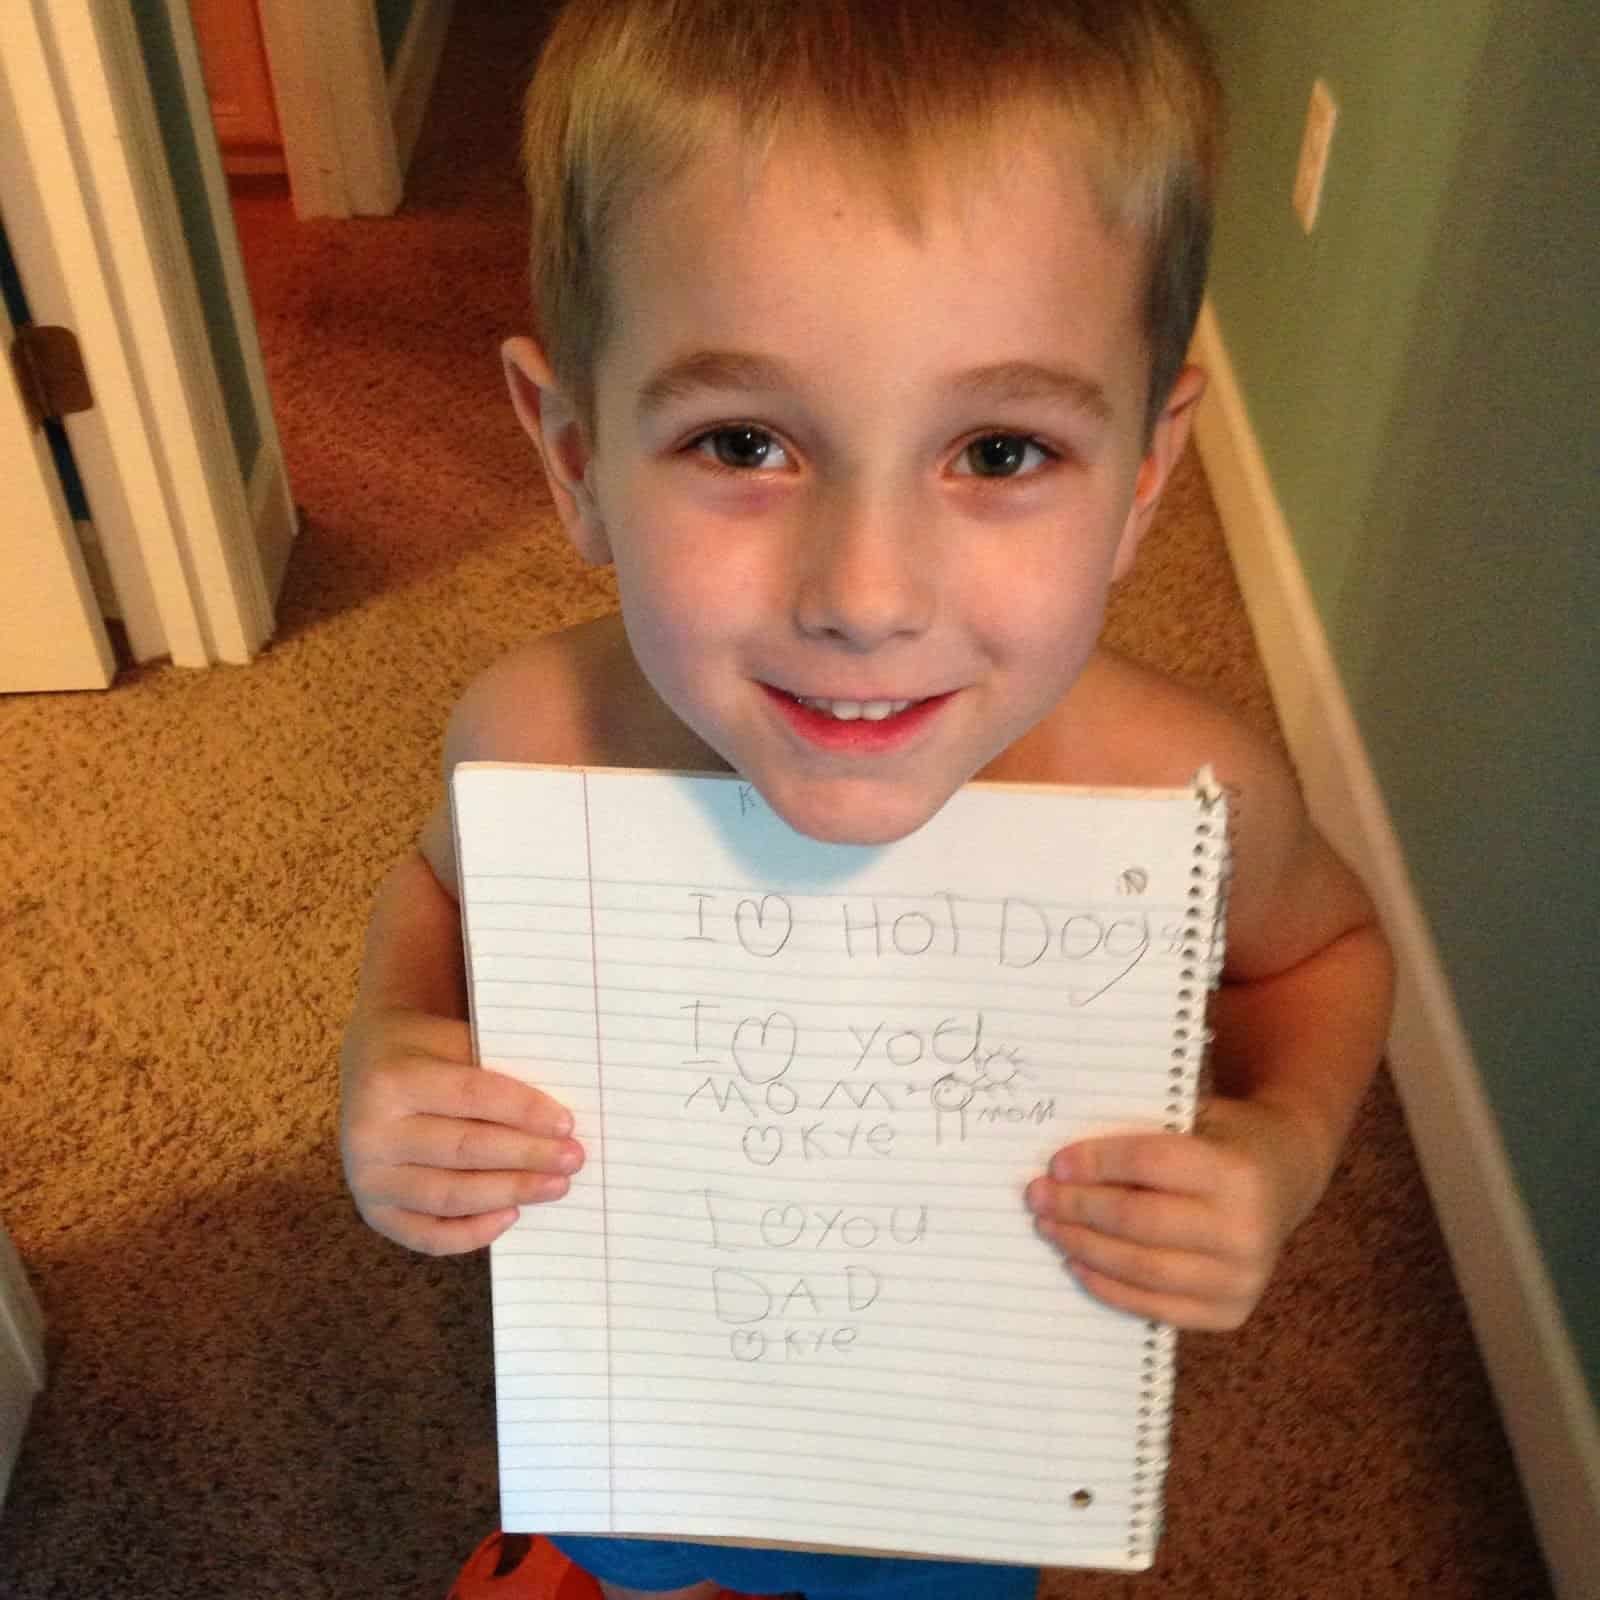 K
I ♡ HOT DOgs
I ♡ YOU
MOM
MOM
♡ KYe
I ♡ YOU
DAD
♡ KYe